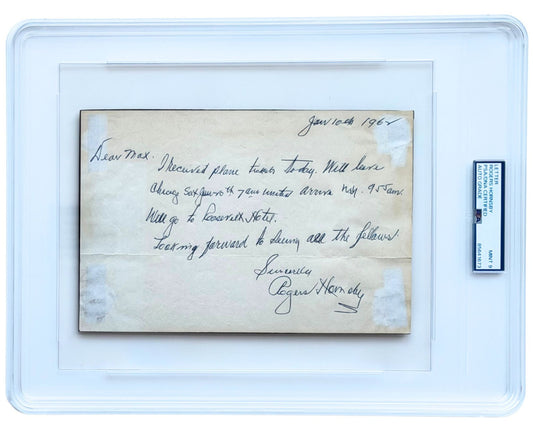 Jan 10th 1962
Dear Max.
I received plane tickets today. Will leave
Chicag Sat Jan 20th 7 am United arrive N.Y. 9:55 am.
Will go to Roosevelt Hotel.
Looking forward to seeing all the fellows
Sincerely
Rogers Hornsby
LETTER
ROGERS HORNSBY
PSA/DNA CERTIFIED
AUTO GRADE
MINT 9
85641673